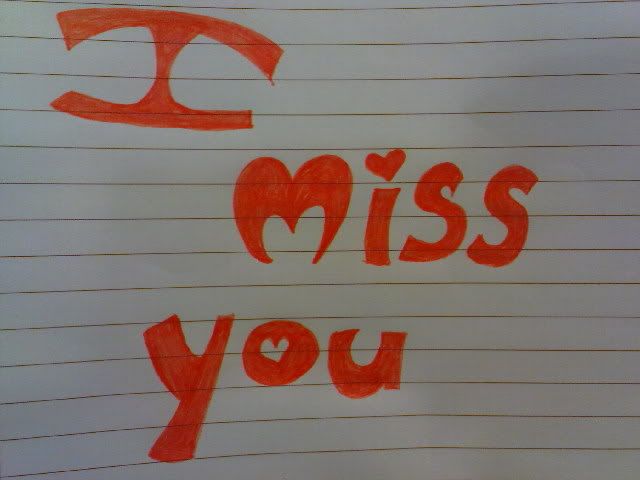 I
Miss
you